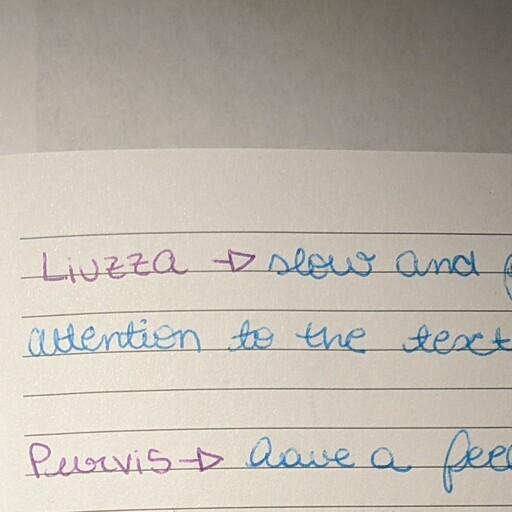 Liuzza → slow and
attention to the text
Purvis → have a